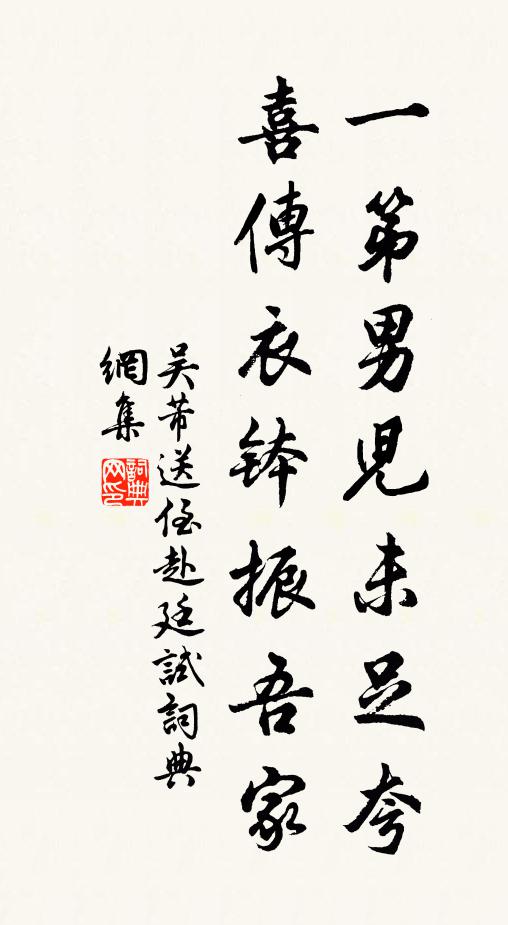 一第男兒未足夸
喜傳衣鉢振吾家
吴芾送侄赴廷試詞典
網集
詞典网印